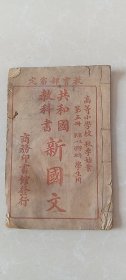 教育部審定
高等小學校 秋季始業
第五冊 學生用
共和國
教科書
新國文
商務印書館發行